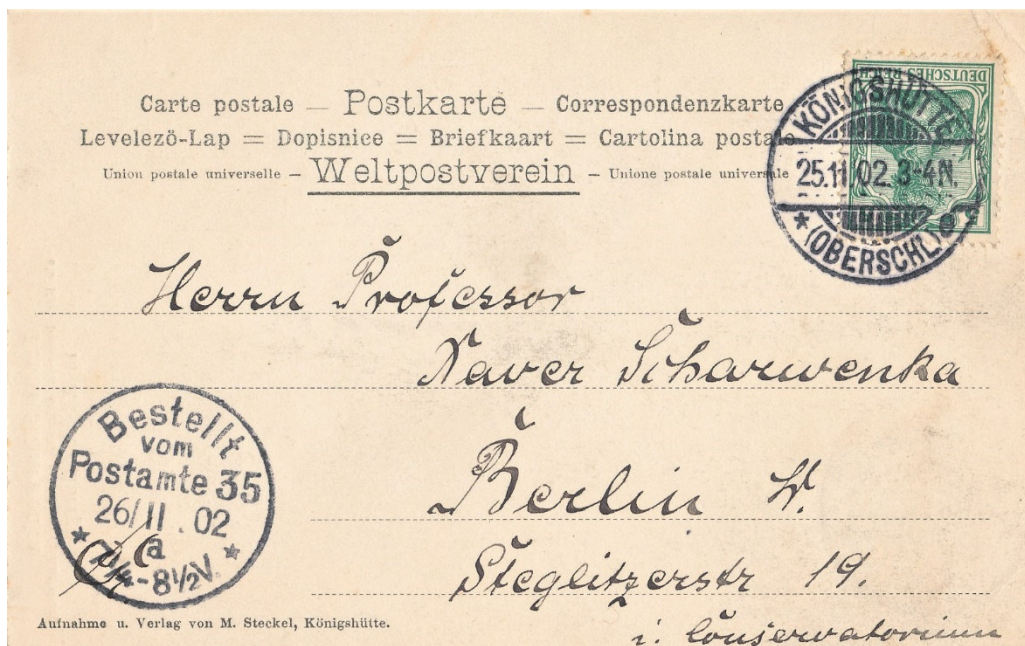 DEUTSCHES REICH
Carte postale — Postkarte — Correspondenzkarte
Levelezö-Lap = Dopisnice = Briefkaart = Cartolina postale
Union postale universelle – Weltpostverein – Unione postale universale
KÖNIGSHÜTTE
25.11.02. 3-4N.
* (OBERSCHL.) e
Herrn Professor
Xaver Scharwenka
Berlin W.
Steglitzerstr 19.
i. Conservatorium
Bestellt
vom
Postamte 35
26/11.02
a
* 7¼-8½V. *
Aufnahme u. Verlag von M. Steckel, Königshütte.